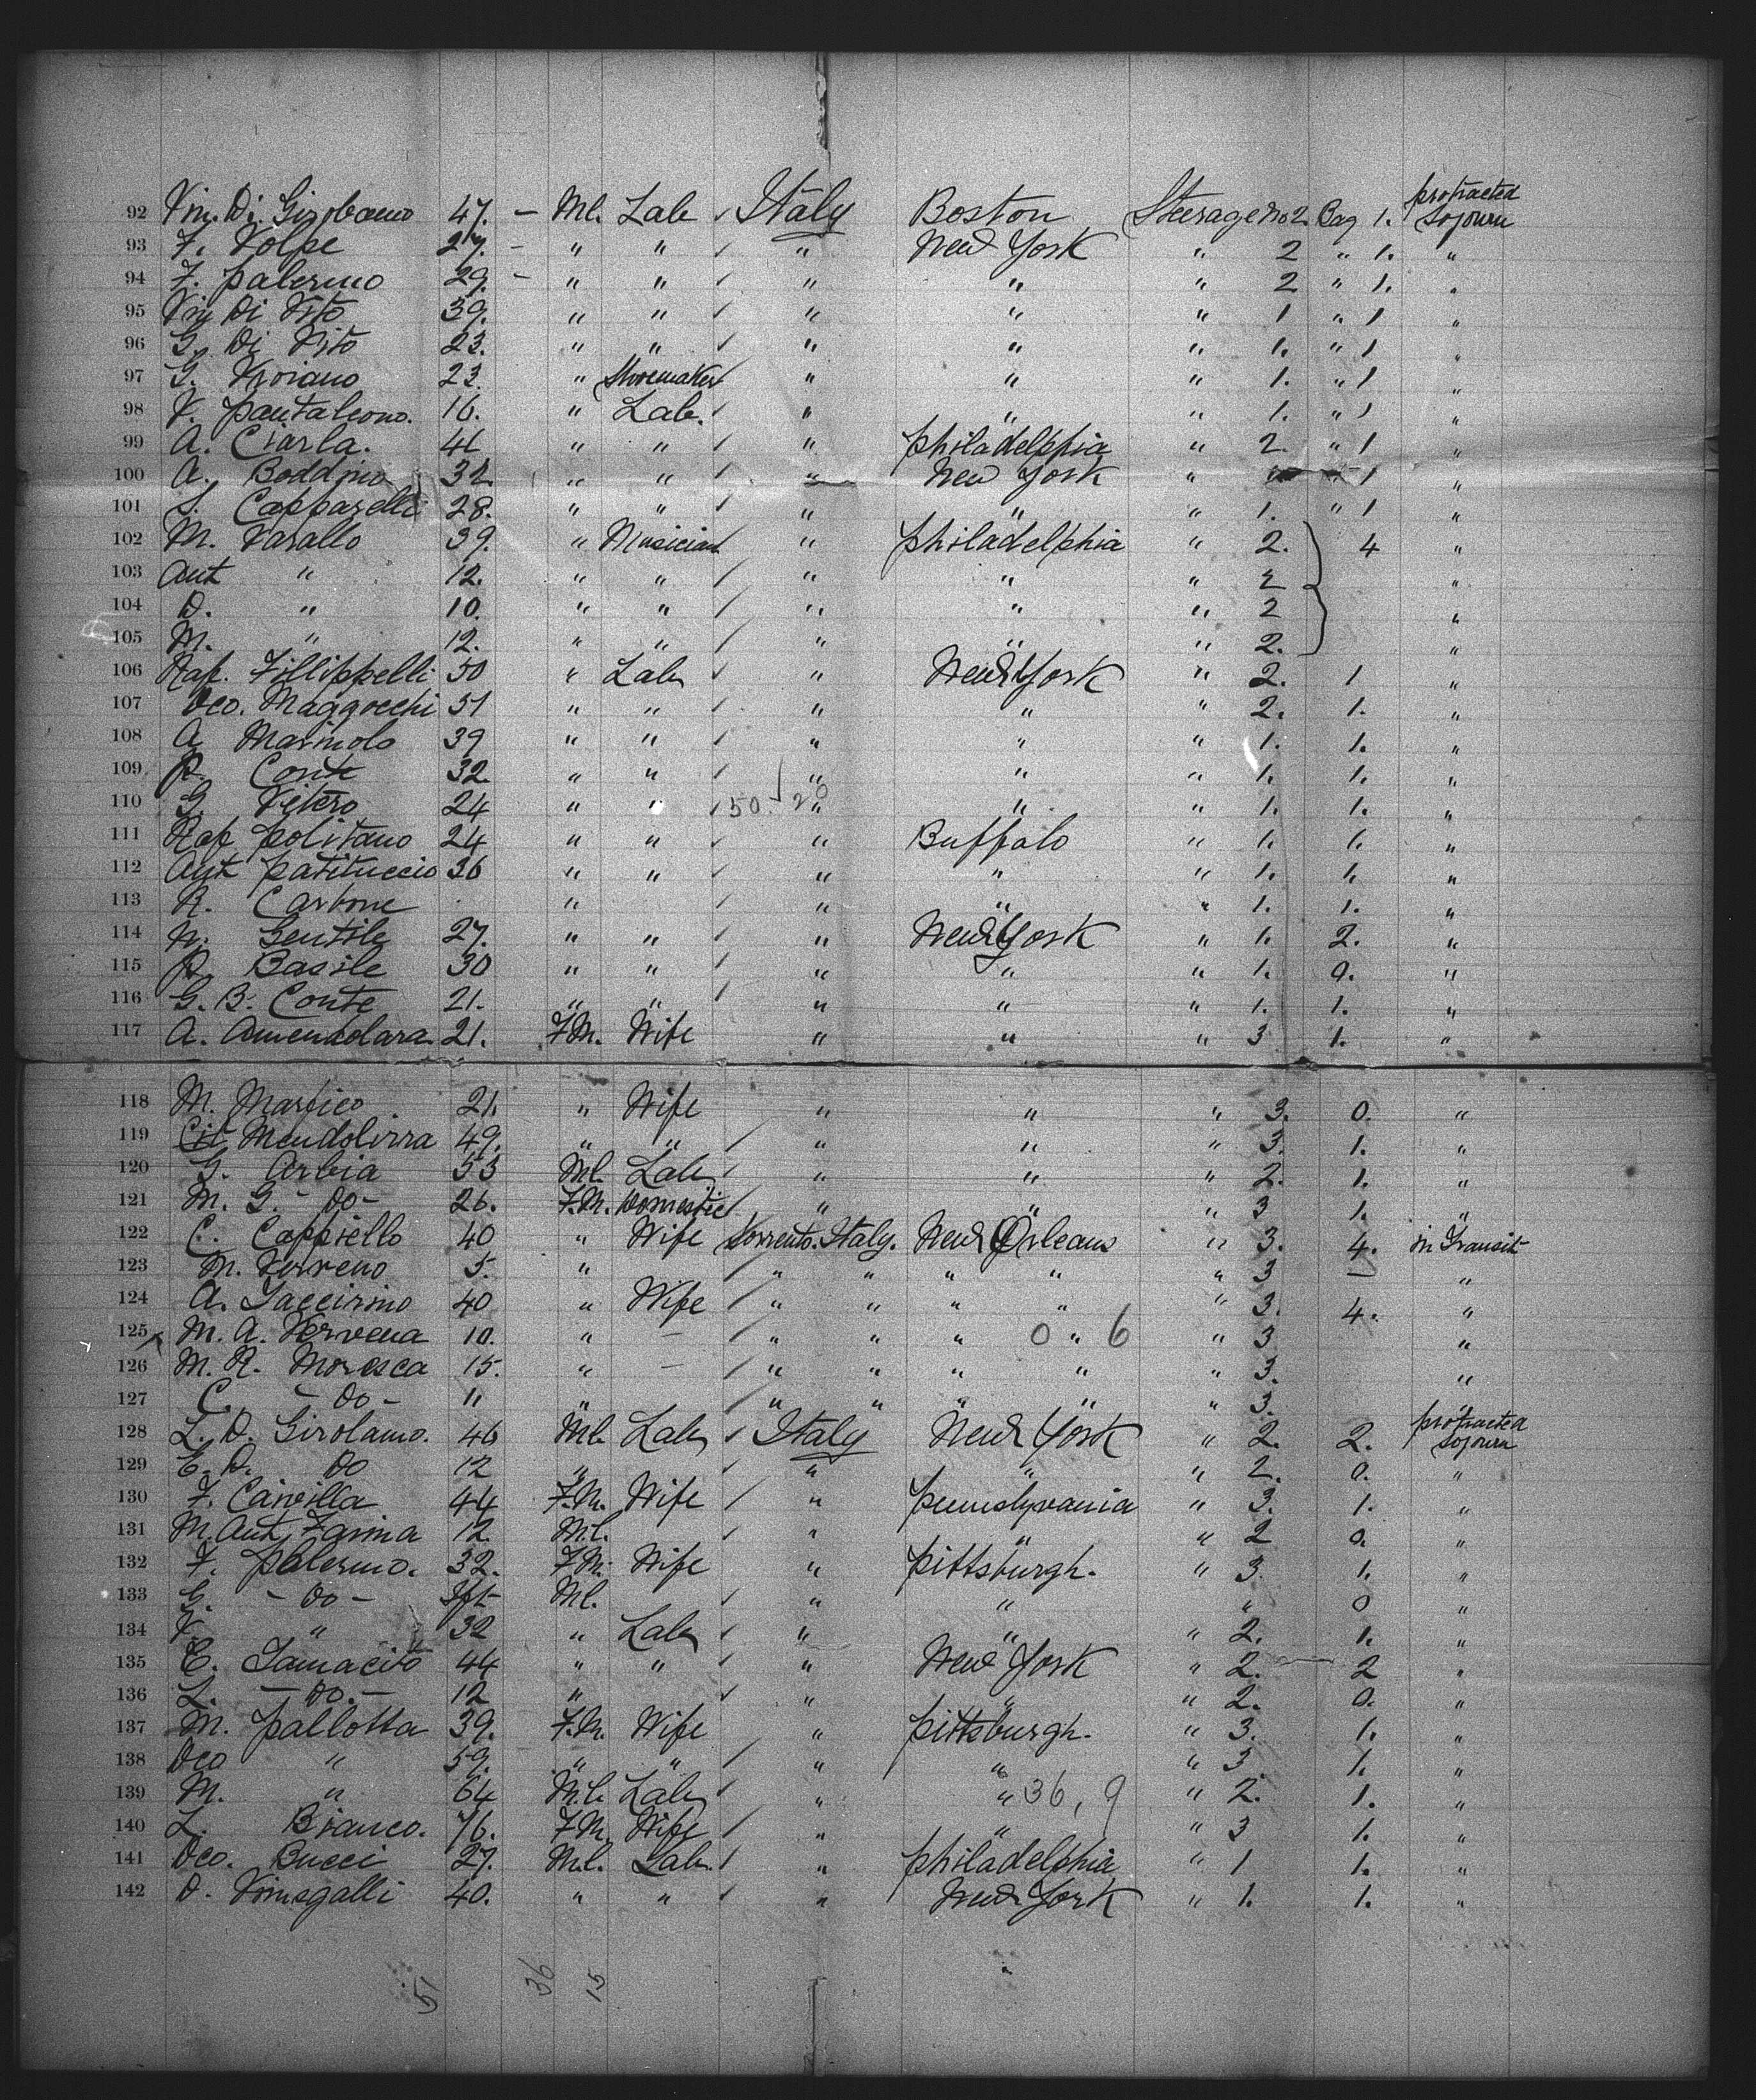 92 Vin. Di Girolamo 47. – Ml. Lab ✓ Italy Boston Steerage No 2. Bag 1. protracted sojourn
93 F. Volpe 27. – " " ✓ " New York " 2 " 1. "
94 F. Palermo 29. – " " ✓ " " " 2 " 1. "
95 Vin Di Vito 39. " " ✓ " " " 1 " 1 "
96 G. Di Vito 23. " " ✓ " " " 1. " 1 "
97 G. Troiano 23. " Shoemaker " " " 1. " 1 "
98 V. Pantaleono. 16. " Lab. ✓ " " " 1. " 1 "
99 A. Ciarla. 46 " " ✓ " Philadelphia " 2. " 1 "
100 A. 32 " " ✓ " New York " 1 "
101 S. Capparelli 28. " " ✓ " " " 1. " 1 "
102 M. Varallo 39. " Musician " Philadelphia " 2. 4 "
103 Ant " 12. " " ✓ " " " 2 "
104 D. " 10. " " ✓ " " " 2 "
105 M. " 12. " " ✓ " " " 2. "
106 Raf. Fillippelli 50 " Lab ✓ " New York " 2. 1 "
107 Dco. Maggocchi 51 " " ✓ " " " 2. 1. "
108 A Marinolo 39 " " ✓ " " " 1. 1. "
109 P. Conte 32. " " ✓ " " " 1. 1. "
110 G. 24 " " ✓ 50 – 20 " " " 1. 1. "
111 Raf Politano 24 " " ✓ " Buffalo " 1. 1. "
112 Ant Patituccio 36 " " ✓ " " " 1. 1. "
113 R. Carbone " " " " 1. 1. "
114 N. Gentile 27. " " ✓ " New York " 1. 2. "
115 P. Basile 30 " " ✓ " " " 1. 0. "
116 G. B. Conte 21. " " ✓ " " " 1. 1. "
117 A. Amendolara 21. F.M. Wife " " " 3 1. "
118 M. Marfico 21. " Wife " " " 3. 0. "
119 Cit Mendolirra 49. " " ✓ " " " 3. 1. "
120 G. Arbia 53 Ml. Lab ✓ " " " 2. 1. "
121 M. G. – Do – 26. F.M. Domestic ✓ " " " 3 1. "
122 C. Cappiello 40 " Wife Sorrento. Italy. New Orleans " 3. 4. in Transit
123 M. 5. " ✓ " " " " " 3 – "
124 A. Jaccirino 40 " Wife ✓ " " " " " 3. 4. "
125 M. A. Vervena 10. " – ✓ " " " 0 " 6 " 3 "
126 M. R. Moresca 15. " – ✓ " " " " " 3. "
127 C. – Do – 11 " ✓ " " " " " 3.
128 L. D. Girolamo. 46 Ml. Lab ✓ Italy New York " 2. 2. protracted sojourn
129 C. D. Do 12 " ✓ " " " 2. 0. "
130 F. Carvilla 44 F.M. Wife ✓ " Pennsylvania " 3. 1. "
131 M. Ant Farina 12. Ml. ✓ " " " 2 0. "
132 F. Palermo. 32. F.M. Wife " Pittsburgh. " 3. 1. "
133 G. – Do – Ift Ml. ✓ " " " 0 "
134 V. " 32 " Lab ✓ " " " 2. 1. "
135 C. Jamacito 44 " " ✓ " New York " 2. 2 "
136 L. – Do. – 12 " ✓ " " " 2. 0. "
137 M. Pallotta 39. F.M. Wife " Pittsburgh. " 3. 1. "
138 Dco " 59. " " ✓ " " " 3 1. "
139 M. " 64 Ml. Lab ✓ " " 36, 9 " 2. 1. "
140 L. Bianco. 76. F.M. Wife ✓ " " " 3 1. "
141 Dco. Bucci 27. Ml. Lab. ✓ " Philadelphia " 1 1. "
142 D. Vinisgalli 40. " " ✓ " New York " 1. 1. "
5 36 15